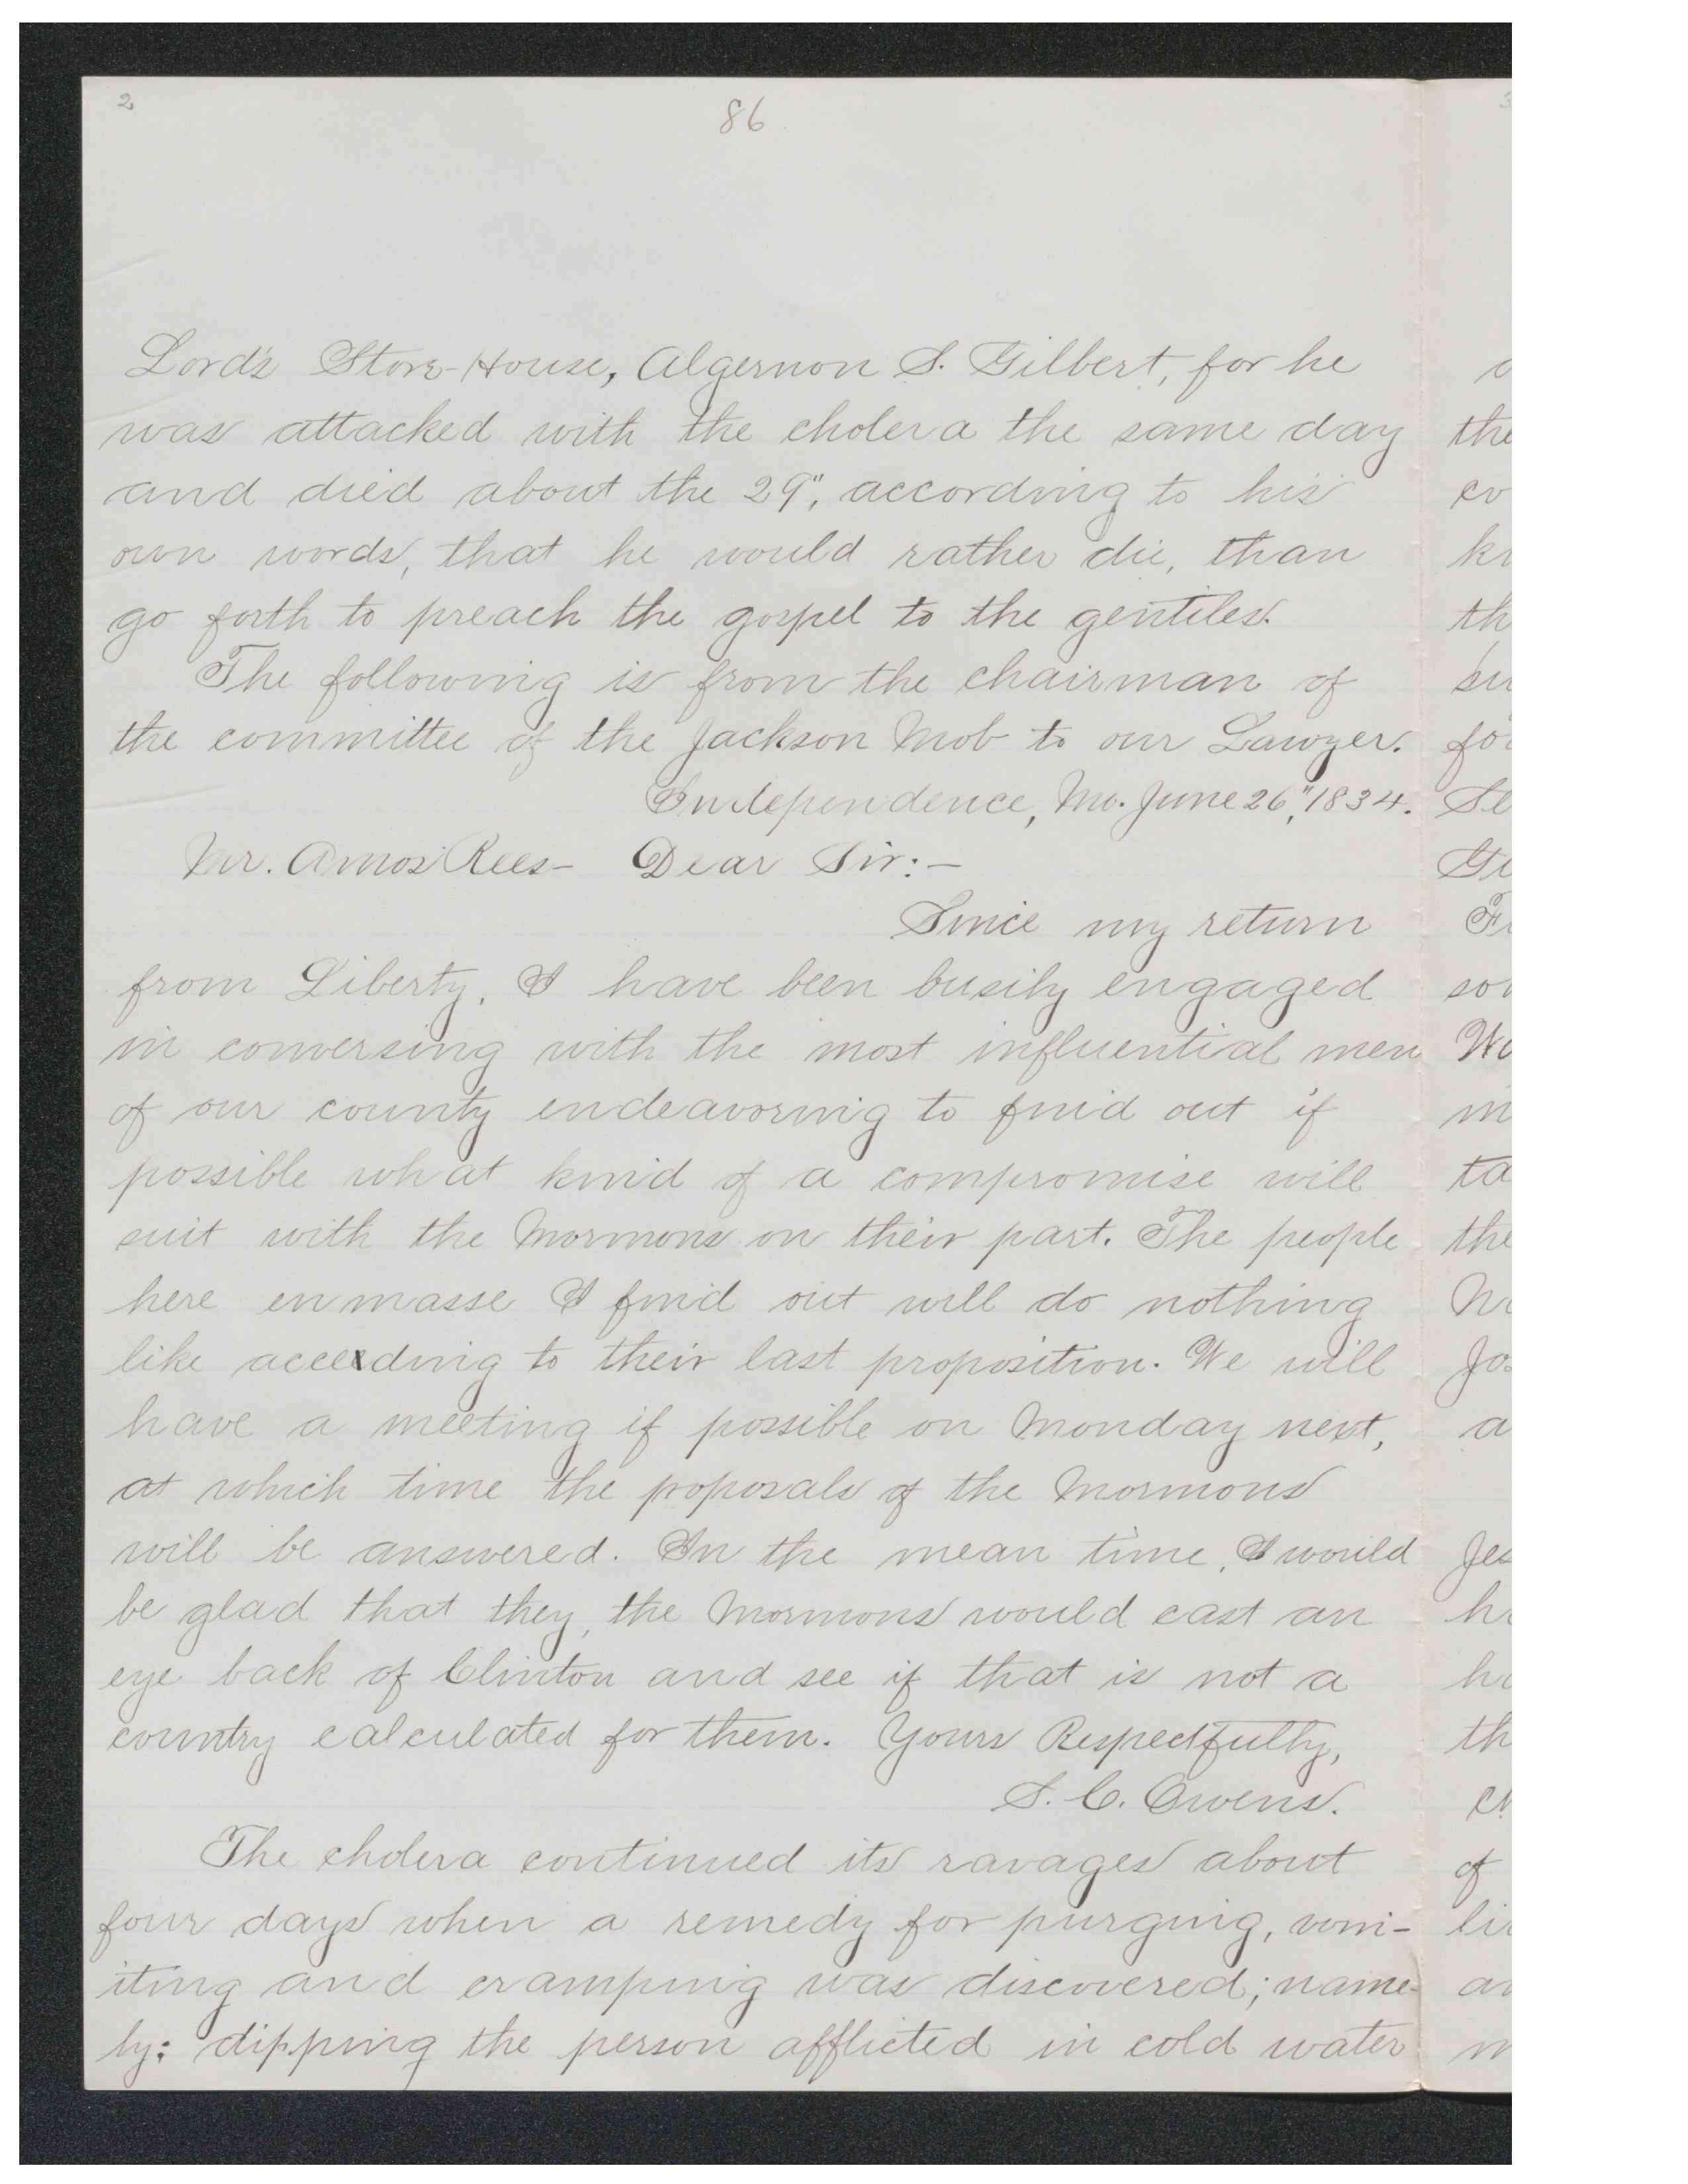 2
86
Lord's Store-House, Algernon S. Gilbert, for he
was attacked with the cholera the same day
and died about the 29", according to his
own words, that he would rather die, than
go forth to preach the gospel to the gentiles.
The following is from the chairman of
the committee of the Jackson Mob to our Lawyer.
Independence, Mo. June 26", 1834.
Mr. Amos Rees- Dear Sir:-
Since my return
from Liberty, I have been busily engaged
in conversing with the most influential men
of our county endeavoring to find out if
possible what kind of a compromise will
suit with the Mormons on their part. The people
here enmasse I find out will do nothing
like acceding to their last proposition. We will
have a meeting if possible on Monday next,
at which time the poposals of the Mormons
will be answered. In the mean time, I would
be glad that they, the Mormons would cast an
eye back of Clinton and see if that is not a
country calculated for them. Yours Respectfully,
S. C. Owens.
The cholera continued its ravages about
four days when a remedy for purging, vom-
iting and cramping was discovered; name-
ly: dipping the person afflicted in cold water